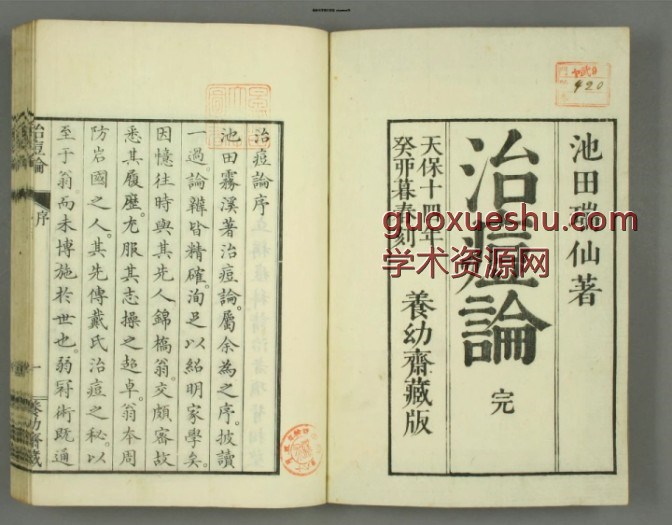 池田瑞仙著
治痘論
完
天保十四年
癸卯暮春刻
養幼齋藏版
920
guoxueshu.com
学术资源网
治痘論序
池田霧溪著治痘論。屬余為之序。披讀
一過論辯皆精確。洵足以紹明家學矣。
因憶往時與其先人錦橋翁。交頗審故
悉其履歷。尤服其志操之超卓。翁本周
防岩國之人。其先傳戴氏治痘之秘。以
至于翁。而未博施於世也。弱冠術既通
治痘論
序
一
養幼齋藏